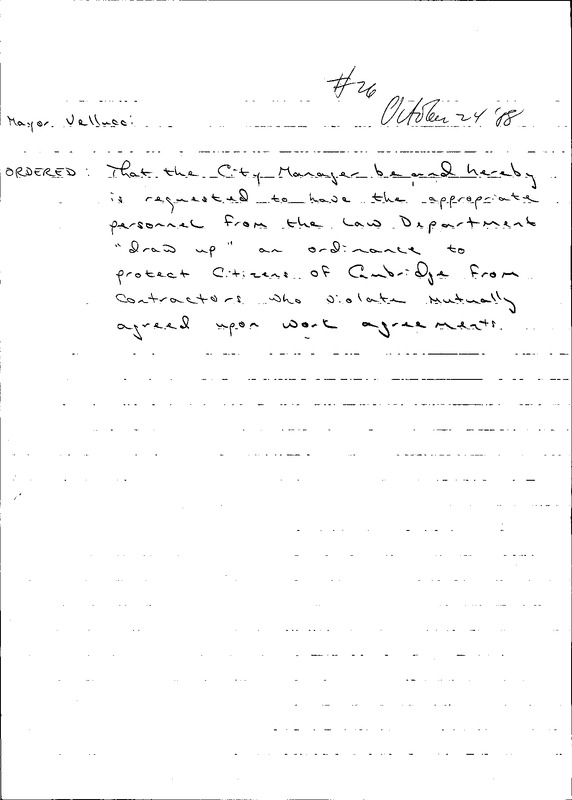 #26
October 24 '88
Mayor Vellucci:
ORDERED: That the City Manager be and hereby
is requested to have the appropriate
personnel from the Law Department
"draw up" an ordinance to
protect Citizens of Cambridge from
Contractors who violate mutually
agreed upon work agreements.